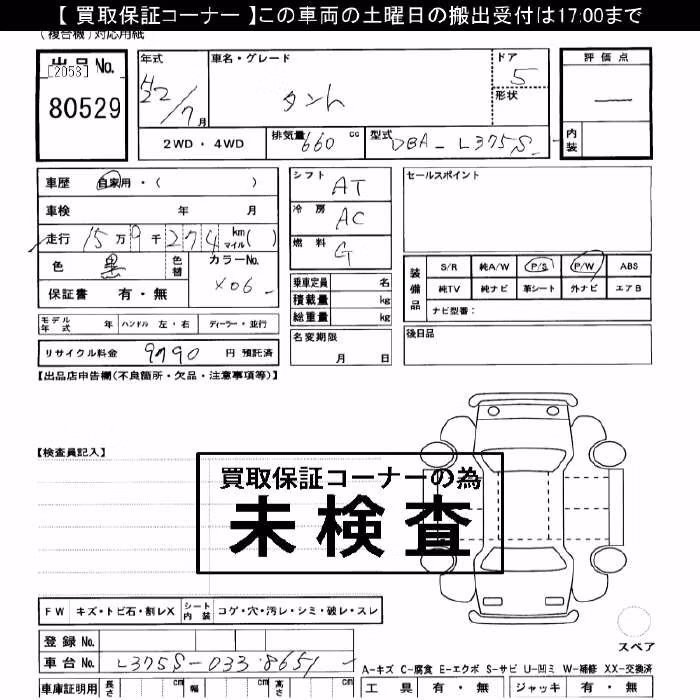 【 買取保証コーナー 】この車両の土曜日の搬出受付は17:00まで
(複合機)対応用紙
出品 No.
[2053]
80529
年式
H22/7月
車名・グレード
タント
ドア
5
形状
評価点
―
内装
2WD・4WD
排気量 660 cc
型式 DBA-L375S-
車歴 自家用・( )
車検 年 月
走行 15万9千274 km マイル( )
色 黒
色替
カラーNo.
X06-
保証書 有・無
シフト AT
冷房 AC
燃料 G
乗車定員 名
積載量 kg
総重量 kg
名変期限
月 日
セールスポイント
装備品
S/R 純A/W P/S P/W ABS
純TV 純ナビ 革シート 外ナビ エアB
ナビ型番:
後日品
モデル年式 年 ハンドル 左・右 ディーラー・並行
リサイクル料金 9790 円 預託済
【出品店申告欄(不良箇所・欠品・注意事項等)】
【検査員記入】
買取保証コーナーの為
未検査
FW キズ・トビ石・割レX シート内装 コゲ・穴・汚レ・シミ・破レ・スレ
登録 No.
車台 No. L375S-0338651-
スペア
A-キズ C-腐食 E-エクボ S-サビ U-凹ミ W-補修 XX-交換済
車庫証明用 長さ cm 幅 cm 高さ cm
工具 有・無 ジャッキ 有・無